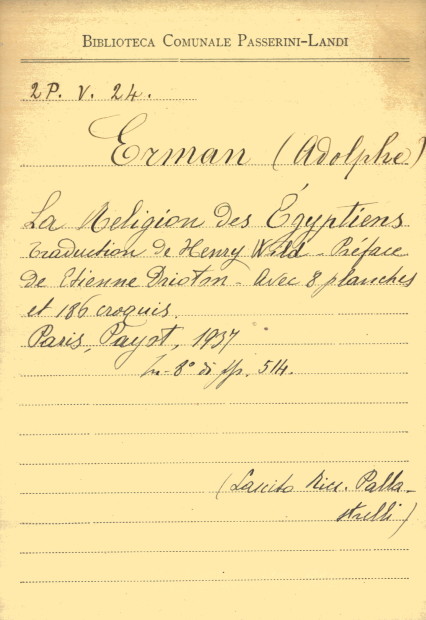 BIBLIOTECA COMUNALE PASSERINI-LANDI
2P. V. 24.
Erman (Adolphe)
La Religion des Égyptiens
Traduction de Henry Wild - Préface
de Etienne Drioton - Avec 8 planches
et 186 croquis.
Paris, Payot, 1937
In-8° di pp. 514.
(Lascito Nicz. Palla-
strelli)